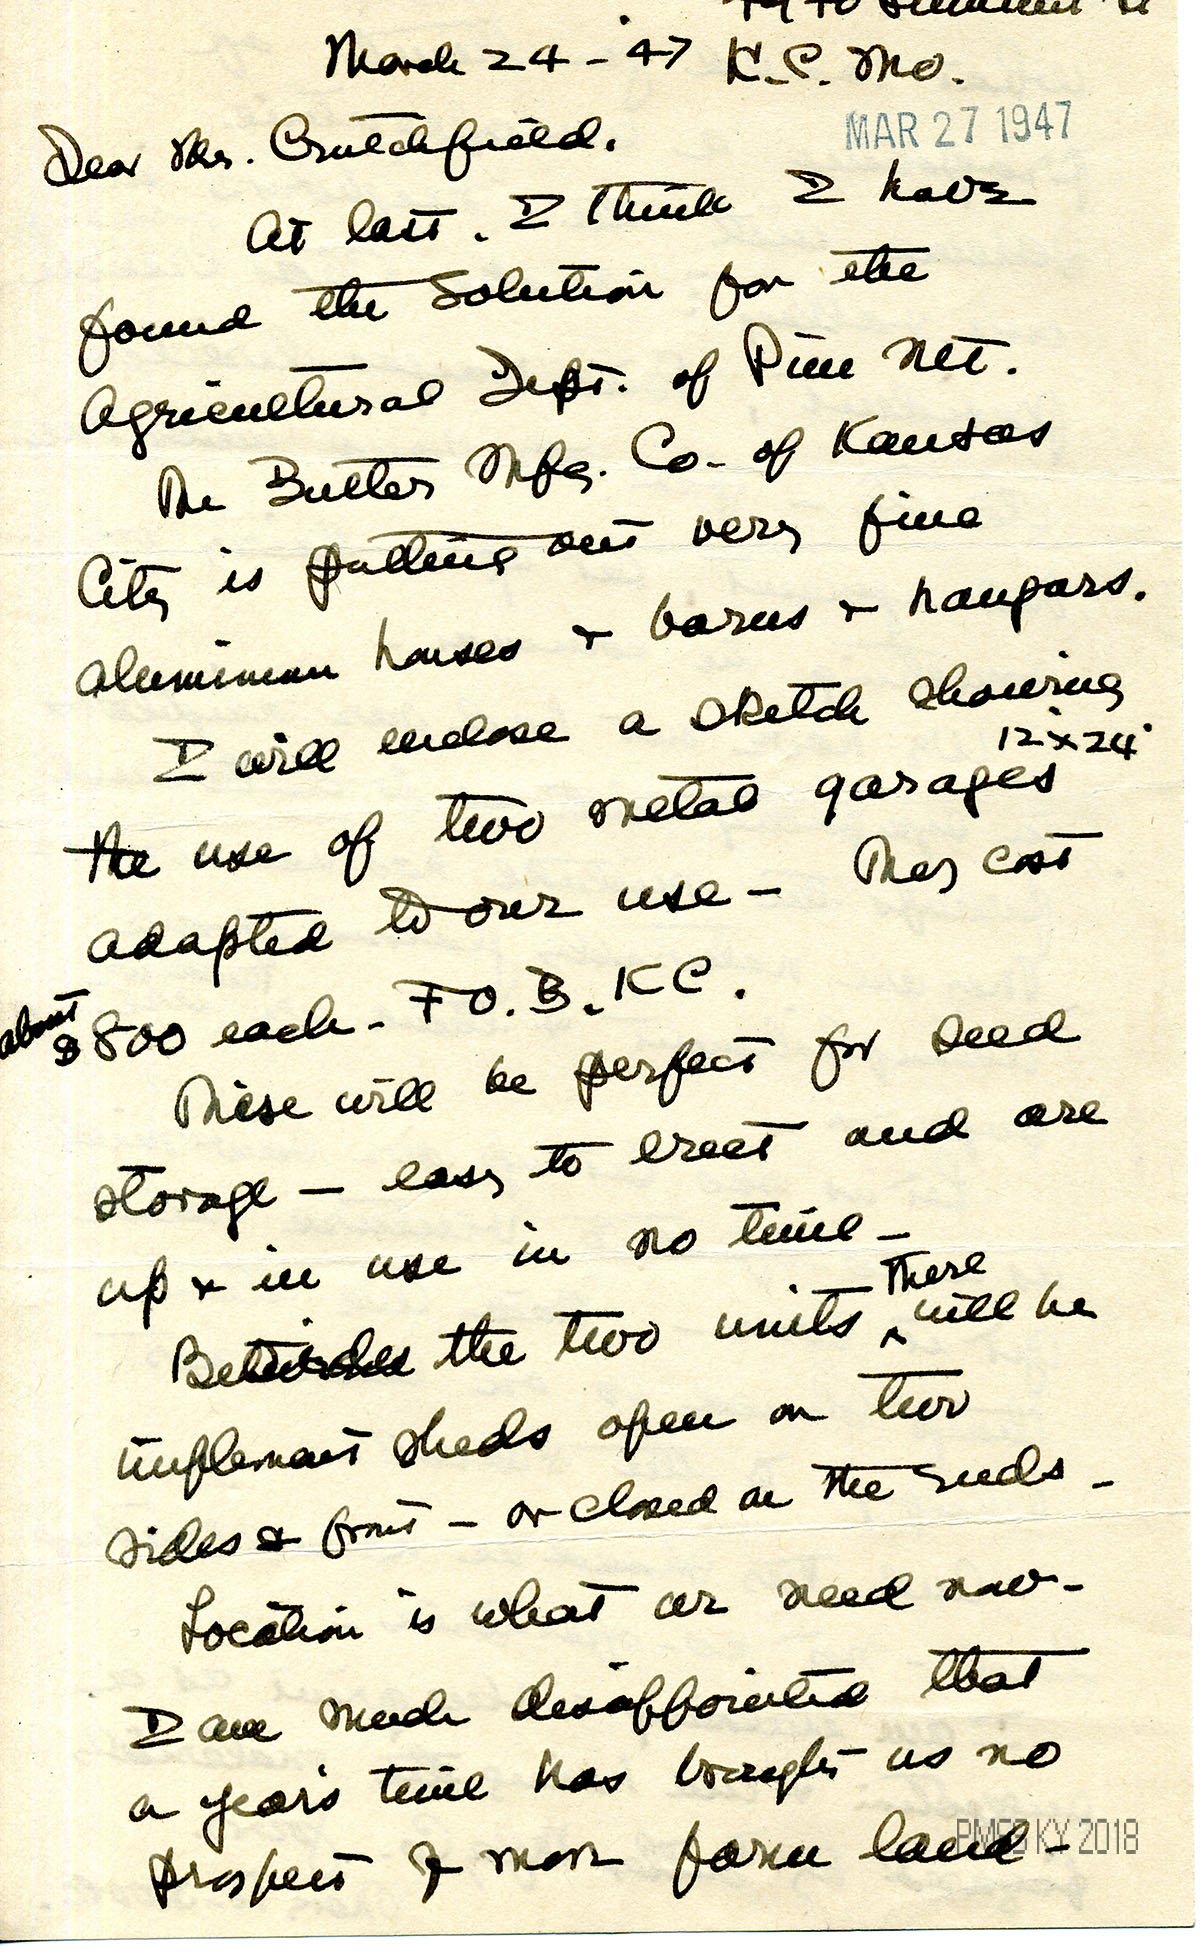 March 24 - '47 K.C. Mo.
MAR 27 1947
Dear Mr. Crutchfield.
At last. I think I have
found the Solution for the
Agricultural Dept. of Pine Net.
The Butler Mfg. Co. of Kansas
City is putting out very fine
aluminum houses & barns & hangars.
I will enclose a sketch showing
12' x 24'
the use of two metal garages
adapted to our use - They cost
about
$800 each - F.O.B. KC.
These will be perfect for seed
storage - easy to erect and are
up & in use in no time -
there
the two units ^ will be
implement sheds open on two
sides & front - or closed on the ends -
Location is what we need now -
I am much disappointed that
a year's time has brought us no
prospect of more farm land -
PMSS KY 2018